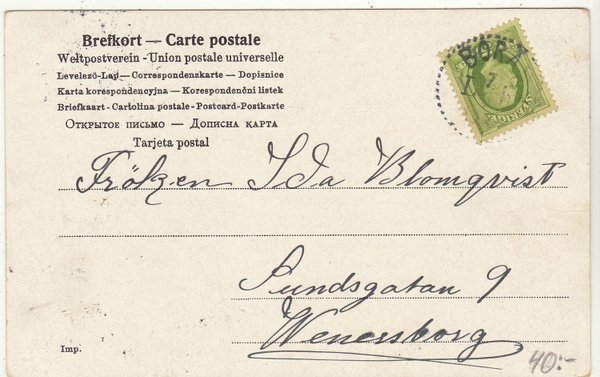 Brefkort — Carte postale
Weltpostverein - Union postale universelle
Levelezö-Lap — Correspondenzkarte — Dopisnice
Karta korespondencyjna — Korespondenční listek
Briefkaart - Cartolina postale - Postcard-Postkarte
Открытое письмо — Дописна карта
Tarjeta postal
Fröken Ida Blomqvist
Sundsgatan 9
Wenersborg
Imp.
40:-
SVERIGE